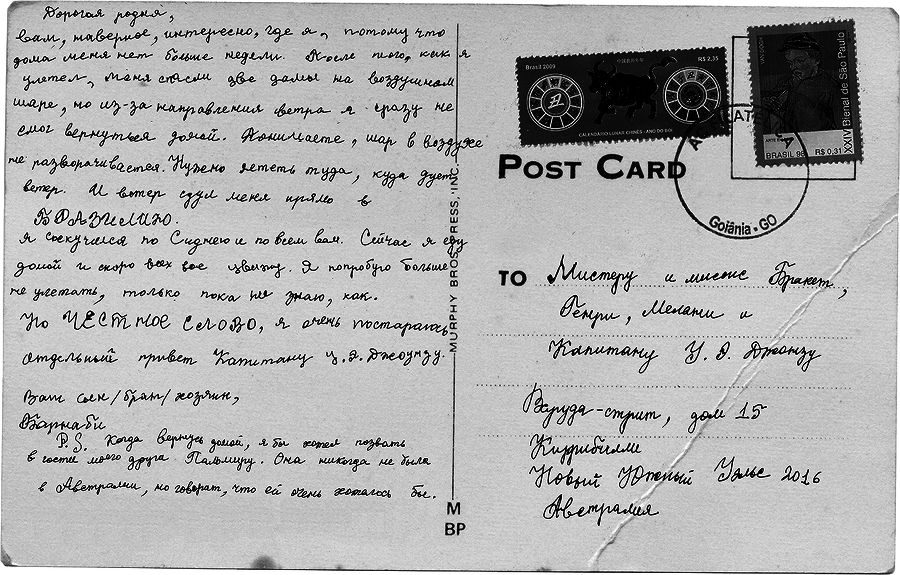 Дорогая родня,
вам, наверное, интересно, где я, потому что
дома меня нет больше недели. После того, как я
улетел, меня спасли две дамы на воздушном
шаре, но из-за направления ветра я сразу не
смог вернуться домой. Понимаете, шар в воздухе
не разворачивается. Нужно лететь туда, куда дует
ветер. И ветер сдул меня прямо в
БРАЗИЛИЮ.
Я соскучился по Сиднею и по всем вам. Сейчас я еду
домой и скоро всех вас увижу. Я попробую больше
не улетать, только пока не знаю, как.
Но ЧЕСТНОЕ СЛОВО, я очень постараюсь
отдельный привет Капитану У.Э.Джоунзу.
Ваш сын/брат/хозяин,
Барнаби
P.S. Когда вернусь домой, я бы хотел позвать
в гости моего друга Пальмиру. Она никогда не была
в Австралии, но говорят, что ей очень хотелось бы.
MURPHY BROS. PRESS, INC.
M
BP
Brasil 2009
R$ 2,35
CALENDÁRIO LUNAR CHINÊS - ANO DO BOI
BRASIL 98
R$ 0,31
XXIV Bienal de São Paulo
Goiânia - GO
POST CARD
TO
Мистеру и миссис Бракет,
Генри, Мелани и
Капитану У. Э. Джонзу
Вруда-стрит, дом 15
Киррибилли
Новый Южный Уэльс 2016
Австралия